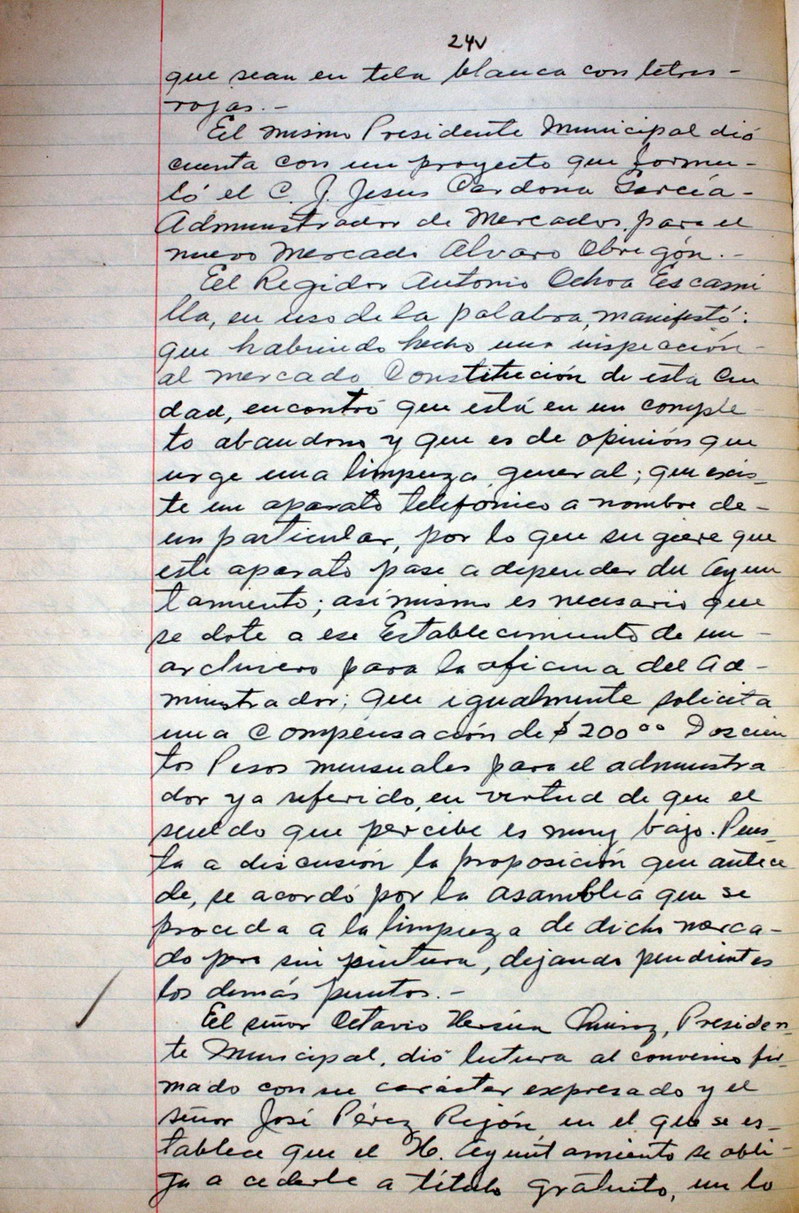 24v
que sean en tela blanca con letras -
rojas.-
El mismo Presidente Municipal dió
cuenta con un proyecto que formu-
ló el C. J. Jesus Cardona García -
Administrador de Mercados, para el
nuevo Mercado Alvaro Obregón.-
El Regidor Antonio Ochoa Escami
lla, en uso de la palabra, manifestó:
que habiendo hecho una inspección -
al mercado Constitución de esta Ciu
dad, encontró que está en un comple-
to abandono y que es de opinión que
urge una limpieza general; que exis-
te un aparato telefónico a nombre de-
un particular, por lo que sugiere que
este aparato pase a depender del Ayun
tamiento; asimismo es necesario que
se dote a ese Establecimiento de un -
archivero para la oficina del Ad-
ministrador; que igualmente solicita
una compensación de $200.00 Doscien
tos Pesos mensuales para el administra
dor ya referido, en virtud de que el
sueldo que percibe es muy bajo. Pues-
ta a discusión la proposición que antece
de, se acordó por la asamblea que se
proceda a la limpieza de dicho merca-
do pero sin pintura, dejando pendientes
los demás puntos.-
El señor Octavio Presiden-
te Municipal, dió lectura al convenio fir-
mado con su carácter expresado y el
señor José Pérez Rijón en el que se es-
tablece que el H. Ayuntamiento se obli-
ga a cederle a título gratuito, un lo